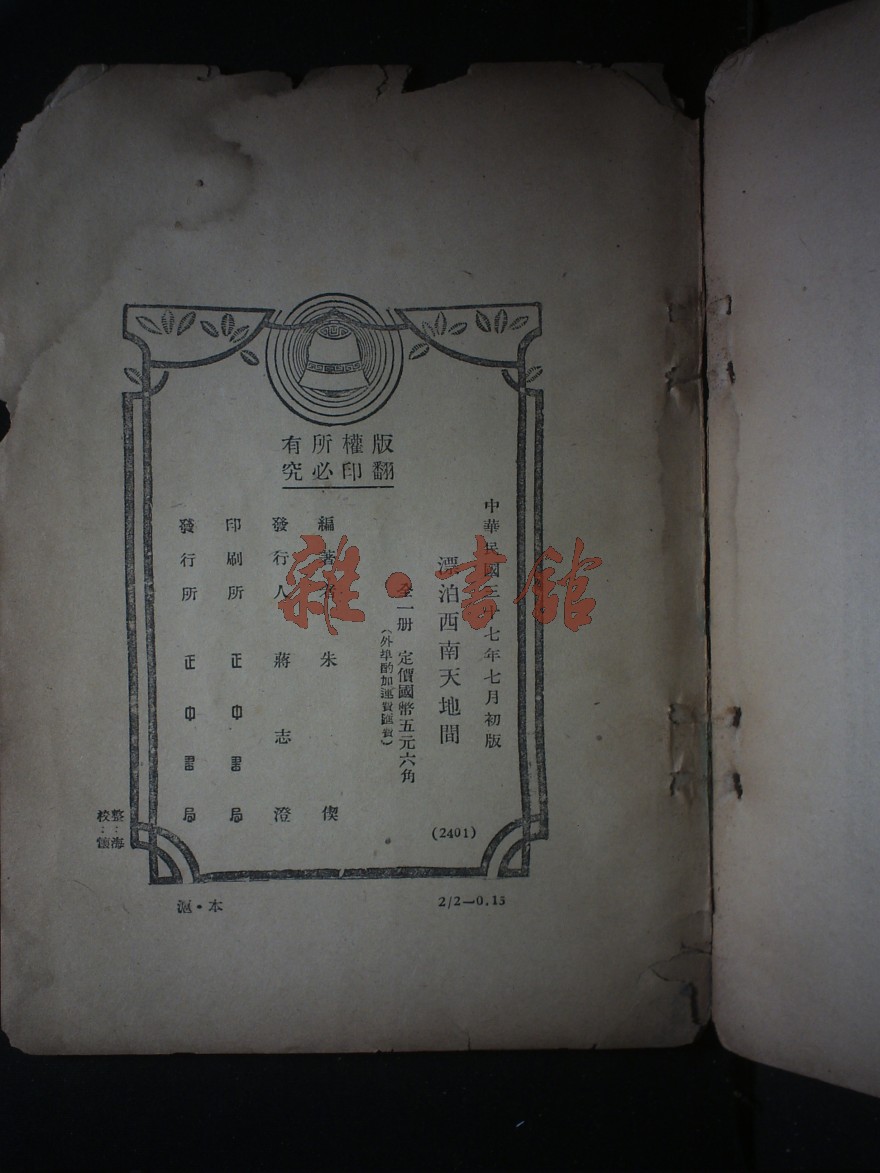 版權所有
翻印必究
中華民國三十七年七月初版
漂泊西南天地間
(2401)
全一册 定價國幣五元六角
（外埠酌加運費匯費）
編著者 朱偰
發行人 蔣志澄
印刷所 正中書局
發行所 正中書局
整：海
校：
滬·本
2/2—0.15
雜·書館